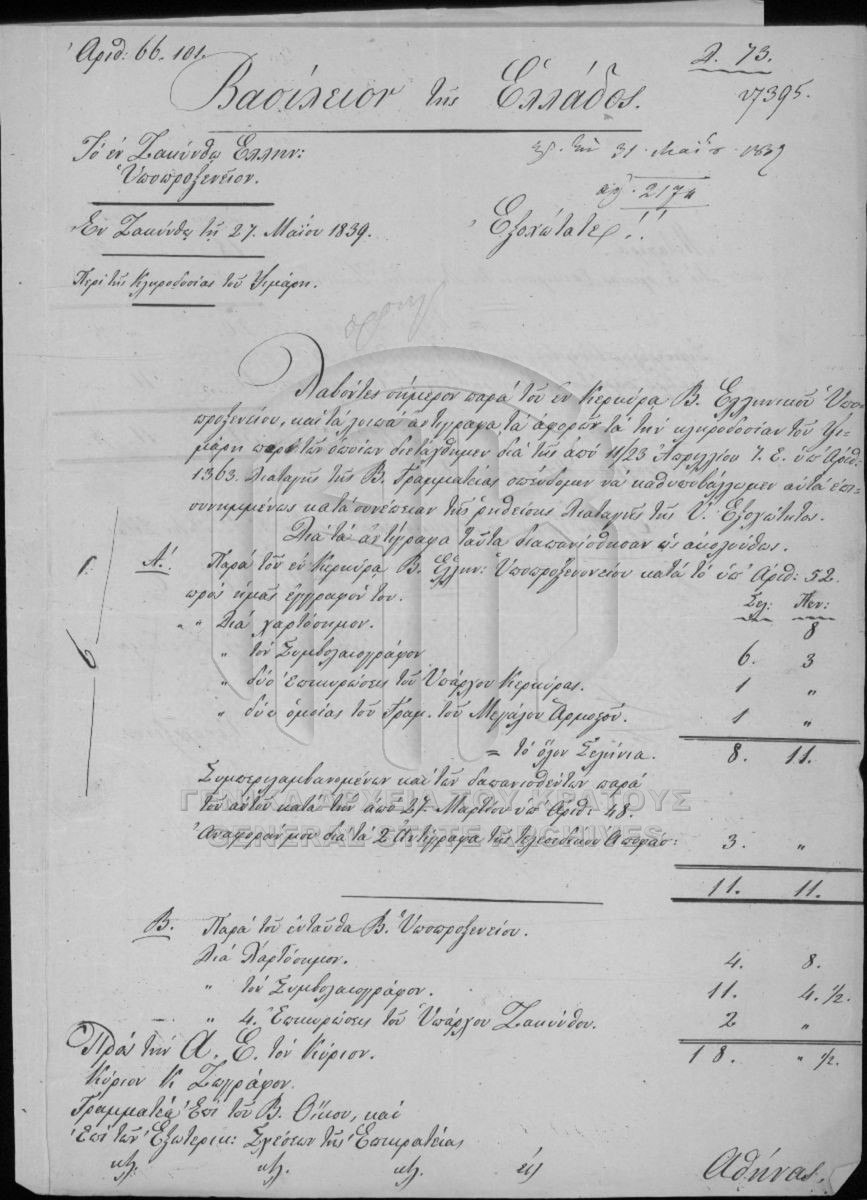 Ἀριθ: 66. 101.
Δ. 73.
Βασίλειον τῆς Ἑλλάδος.
7395.
Τὸ ἐν Ζακύνθῳ Ἑλλην:
Ὑποπροξενεῖον.
31 Μαΐου 1839
2174
Ἐν Ζακύνθῳ τῇ 27. Μαΐου 1839.
Ἐξοχώτατε!!
Περὶ τῆς Κληροδοσίας τοῦ Ψιμάρη.
Λαβόντες σήμερον παρὰ τοῦ ἐν Κερκύρᾳ Β. Ἑλληνικοῦ Ὑπο-
προξενείου, καὶ τὰ λοιπὰ ἀντίγραφα τὰ ἀφορῶντα τὴν κληροδοσίαν τοῦ Ψι-
μάρη περὶ τῶν ὁποίων διετάχθημεν διὰ τῆς ἀπὸ 11/23 Ἀπριλλίου ἰ. ἔ. ὑπ' Ἀριθ.
1363. Διαταγῆς τῆς Β. Γραμματείας σπεύδομεν νὰ καθυποβάλλωμεν αὐτὰ ἐπι-
συνημμένως κατὰ συνέπειαν τῆς ῥηθείσης Διαταγῆς τῆς Ὑ. Ἐξοχότητος.
Διὰ τὰ ἀντίγραφα ταῦτα ἐδαπανίσθησαν ὡς ἀκολούθως.
Α! Παρὰ τοῦ ἐν Κερκύρᾳ Β. Ἑλλην: Ὑποπροξενείου κατὰ τὸ ὑπ' Ἀριθ: 52.
πρὸς ἡμᾶς ἔγγραφόν του.
Σελ: Πεν:
" Διὰ χαρτόσημον. 8
" τὸν Συμβολαιογράφον 6. 3
" δύο ἐπικυρώσεις τοῦ Ὑπάρχου Κερκύρας. 1 "
" δύω ὁμοίας τοῦ Γραμ. τοῦ Μεγάλου Ἁρμοστοῦ. 1 "
= τὸ ὅλον Σελήνια. 8. 11.
Συμπεριλαμβανομένων καὶ τῶν δαπανισθέντων παρὰ
τοῦ αὐτοῦ κατὰ τὴν ἀπὸ 27. Μαρτίου ὑπ' Ἀριθ: 48.
Ἀναφοράν μου διὰ τὰ 2 Ἀντίγραφα τῆς τελεσιδίκου Ἀποφάσ: 3. "
11. 11.
ΓΕΝΙΚΑ ΑΡΧΕΙΑ ΤΟΥ ΚΡΑΤΟΥΣ
GENERAL STATE ARCHIVES
Β. Παρὰ τοῦ ἐνταῦθα Β. Ὑποπροξενείου.
Διὰ Χαρτόσημον. 4. 8.
" τὸν Συμβολαιογράφον. 11. 4. ½.
" 4. Ἐπικυρώσεις τοῦ Ὑπάρχου Ζακύνθου. 2 "
18. " ½.
Πρὸς τὴν Α. Ε. τὸν Κύριον.
Κύριον Κ Ζωγράφον.
Γραμματέα Ἐπὶ τοῦ Β. Οἴκου, καὶ
Ἐπὶ τῶν Ἐξωτερικ: Σχέσεων τῆς Ἐπικρατείας
κτλ. κτλ. κτλ. εἰς Ἀθήνας.